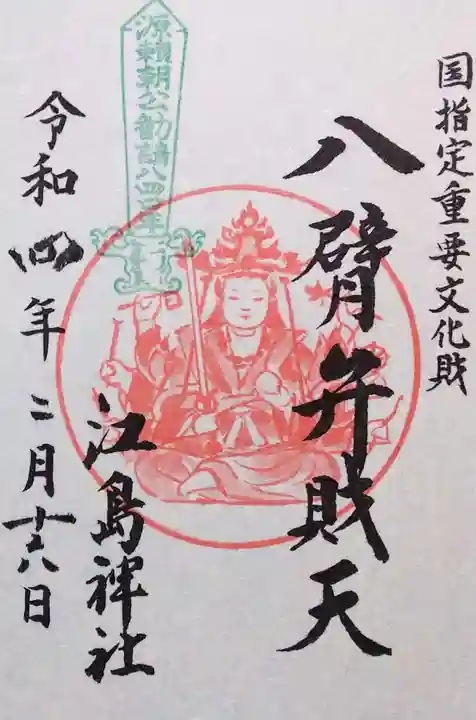 国指定重要文化財
八臂弁財天
江島神社
源頼朝公勧請八四〇年
令和四年二月十六日